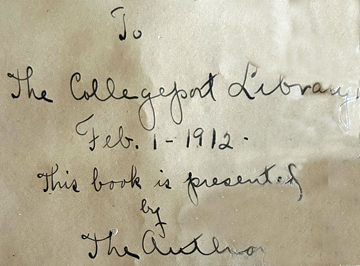 To
The Collegeport Library
Feb. 1 - 1912.
This book is presented
by
The Author